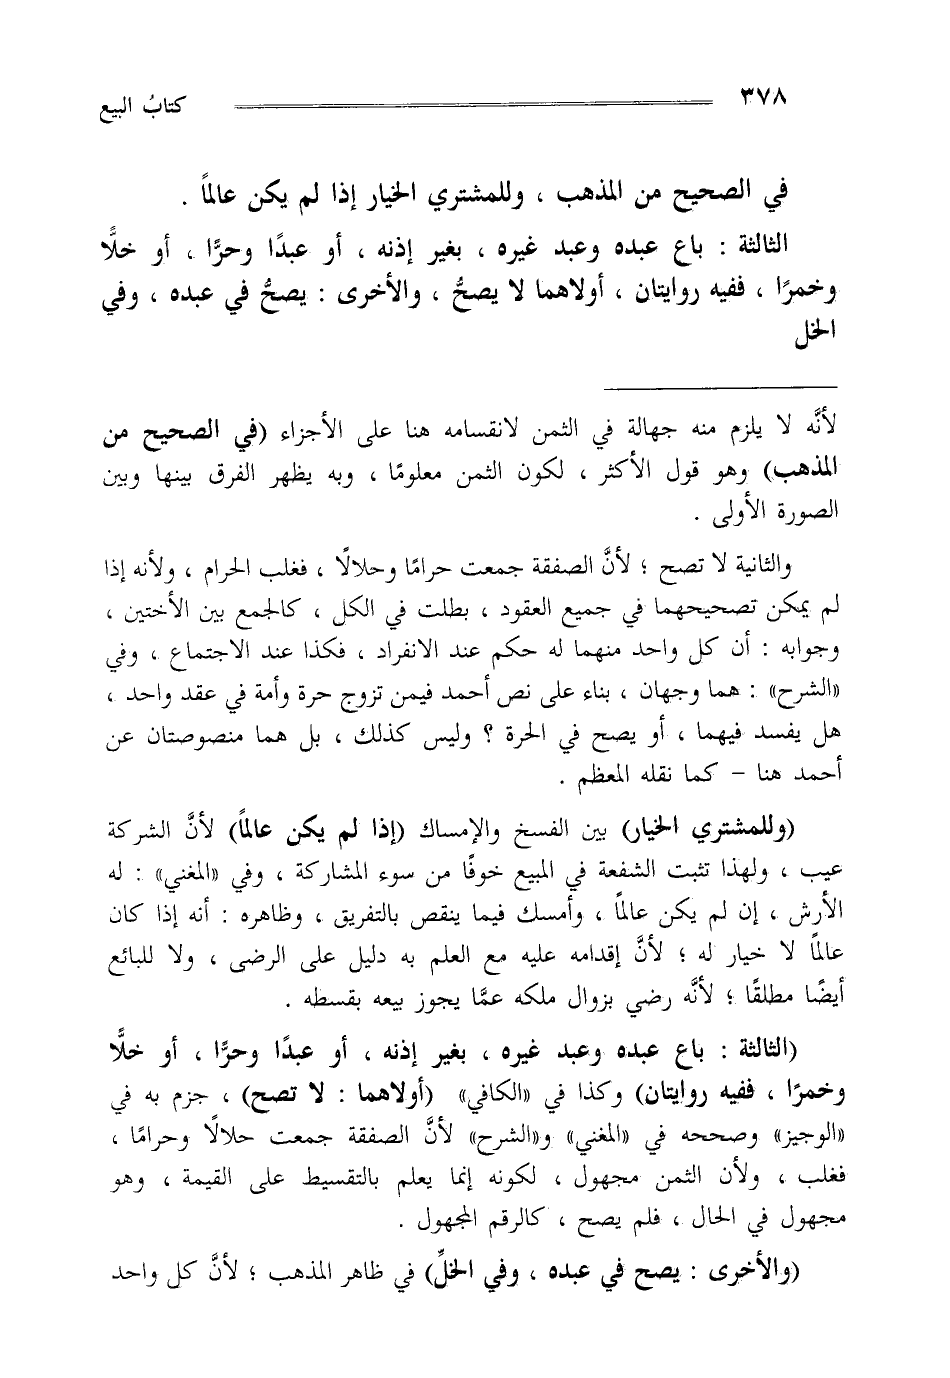 ٣٧٨
كتابُ البيع
في الصحيح من المذهب ، وللمشتري الخيار إذا لم يكن عالماً .
الثالثة : باع عبده وعبد غيره ، بغير إذنه ، أو عبدًا وحرًّا ، أو خلًّا
وخمرًا ، ففيه روايتان ، أولاهما لا يصحُّ ، والأخرى : يصحُّ في عبده ، وفي
الخل
لأنَّه لا يلزم منه جهالة في الثمن لانقسامه هنا على الأجزاء (في الصحيح من
المذهب) وهو قول الأكثر ، لكون الثمن معلومًا ، وبه يظهر الفرق بينها وبين
الصورة الأولى .
والثانية لا تصح ؛ لأنَّ الصفقة جمعت حرامًا وحلالًا ، فغلب الحرام ، ولأنه إذا
لم يمكن تصحيحهما في جميع العقود ، بطلت في الكل ، كالجمع بين الأختين ،
وجوابه : أن كل واحد منهما له حكم عند الانفراد ، فكذا عند الاجتماع ، وفي
«الشرح» : هما وجهان ، بناء على نص أحمد فيمن تزوج حرة وأمة في عقد واحد ،
هل يفسد فيهما ، أو يصح في الحرة ؟ وليس كذلك ، بل هما منصوصتان عن
أحمد هنا – كما نقله المعظم .
(وللمشتري الخيار) بين الفسخ والإمساك (إذا لم يكن عالماً) لأنَّ الشركة
عيب ، ولهذا تثبت الشفعة في المبيع خوفًا من سوء المشاركة ، وفي «المغني» : له
الأرش ، إن لم يكن عالماً ، وأمسك فيما ينقص بالتفريق ، وظاهره : أنه إذا كان
عالماً لا خيار له ؛ لأنَّ إقدامه عليه مع العلم به دليل على الرضى ، ولا للبائع
أيضًا مطلقًا ؛ لأنَّه رضي بزوال ملكه عمَّا يجوز بيعه بقسطه .
(الثالثة : باع عبده وعبد غيره ، بغير إذنه ، أو عبدًا وحرًّا ، أو خلًّا
وخمرًا ، ففيه روايتان) وكذا في «الكافي» (أولاهما : لا تصح) ، جزم به في
«الوجيز» وصححه في «المغني» و«الشرح» لأنَّ الصفقة جمعت حلالًا وحرامًا ،
فغلب ، ولأن الثمن مجهول ، لكونه إنما يعلم بالتقسيط على القيمة ، وهو
مجهول في الحال ، فلم يصح ، كالرقم المجهول .
(والأخرى : يصح في عبده ، وفي الخلِّ) في ظاهر المذهب ؛ لأنَّ كل واحد